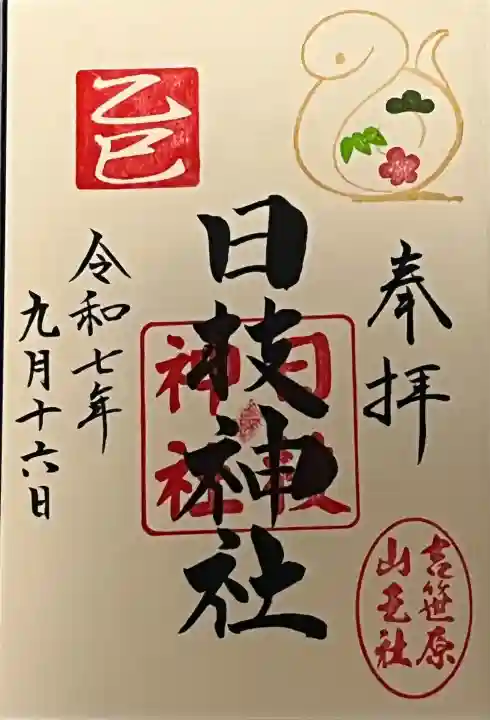 奉拝
日枝神社
日枝
神社
吉笹原
山王社
乙巳
令和七年
九月十六日